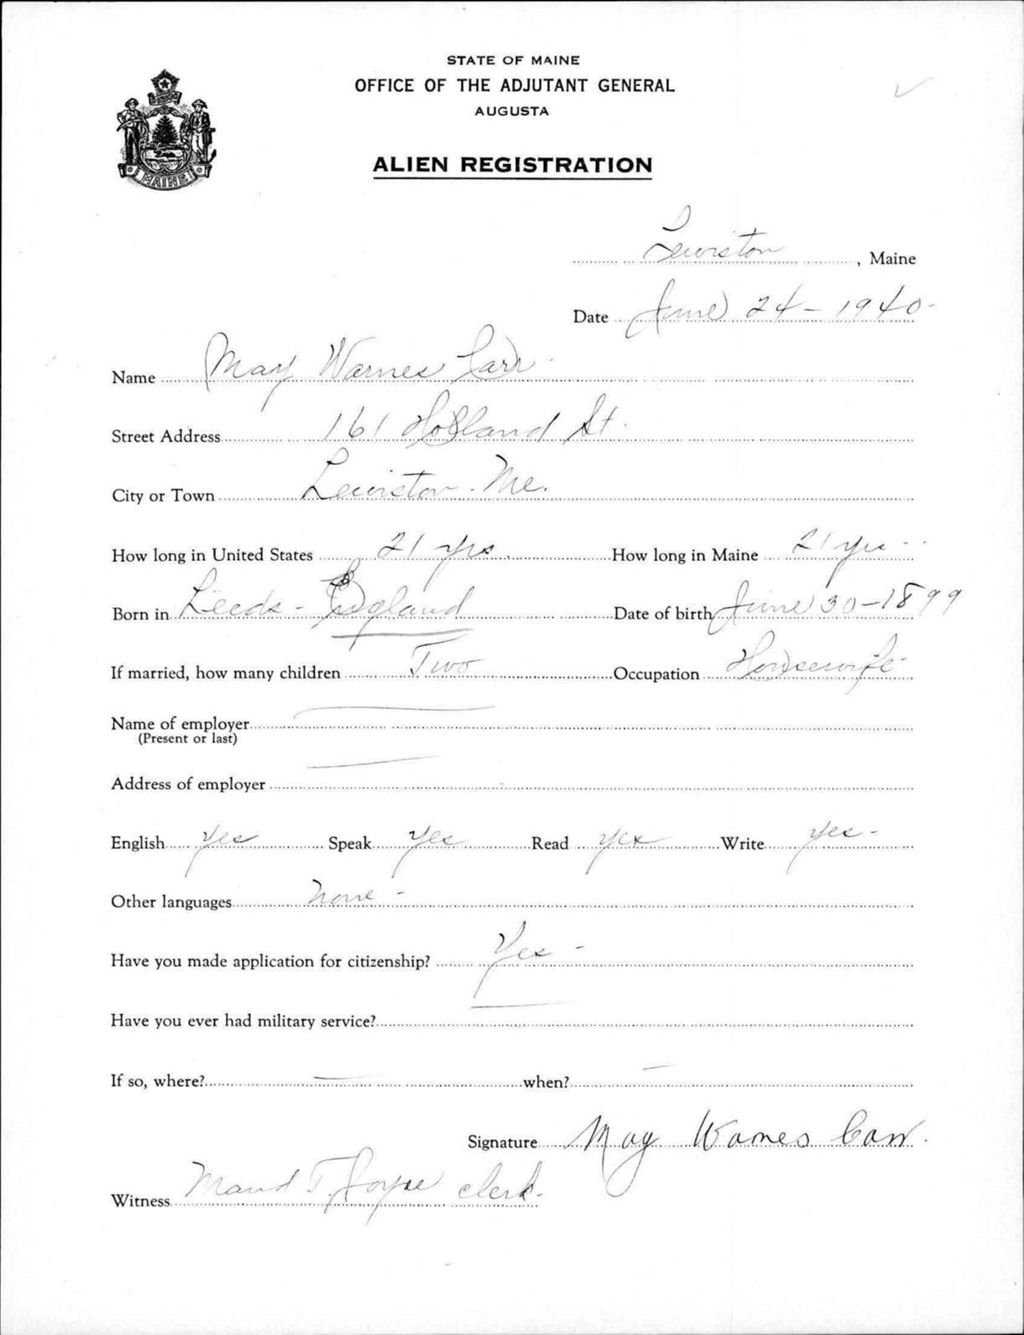 STATE OF MAINE
OFFICE OF THE ADJUTANT GENERAL
AUGUSTA
MAINE
ALIEN REGISTRATION
Lewiston, Maine
Date June 24 - 1940
Name May Warnes Carr
Street Address 161 Holland St.
City or Town Lewiston. Me.
How long in United States 21 yrs. How long in Maine 21 yrs
Born in Leeds - England Date of birth June 30-1899
If married, how many children Two Occupation Housewife
Name of employer
(Present or last)
Address of employer
English Yes Speak Yes Read yes Write Yes -
Other languages None -
Have you made application for citizenship? Yes -
Have you ever had military service?
If so, where? — when? —
Signature May Warnes Carr.
Witness Maud T. Joyce clerk.